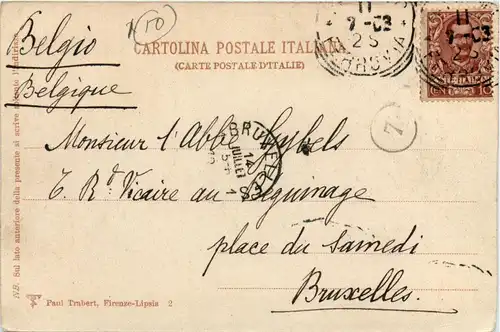 1(50)
Belgio
Belgique
CARTOLINA POSTALE ITALIANA
(CARTE POSTALE D'ITALIE)
11
7-03
2 S
FERROVIA
7
Monsieur l'Abbé Gybels
T. Rd Vicaire au Béguinage
place du Samedi
Bruxelles.
BRUXELLES
14
JUILLET
NB. Sul lato anteriore della presente si scrive soltanto l'indirizzo
Paul Trabert, Firenze-Lipsia 2